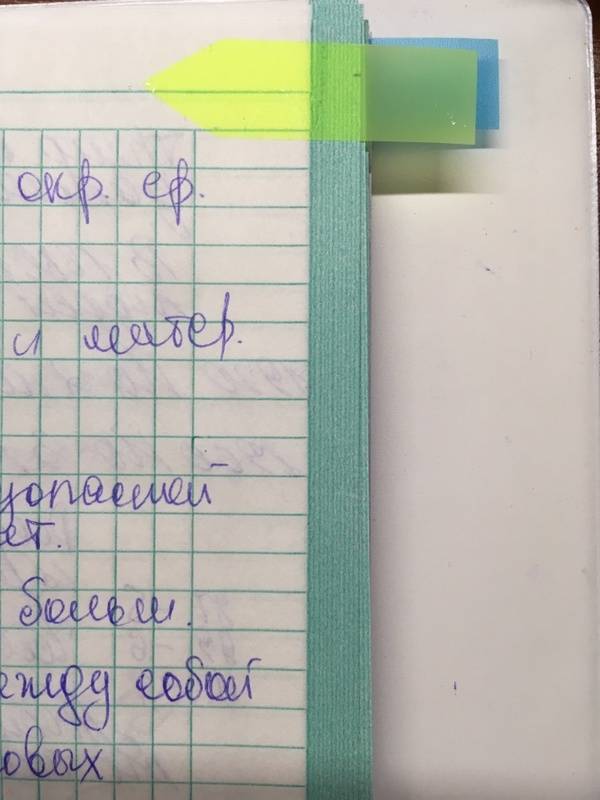 окр. ср.
и матер.
зопасной
ет.
больш.
ежду собой
овых